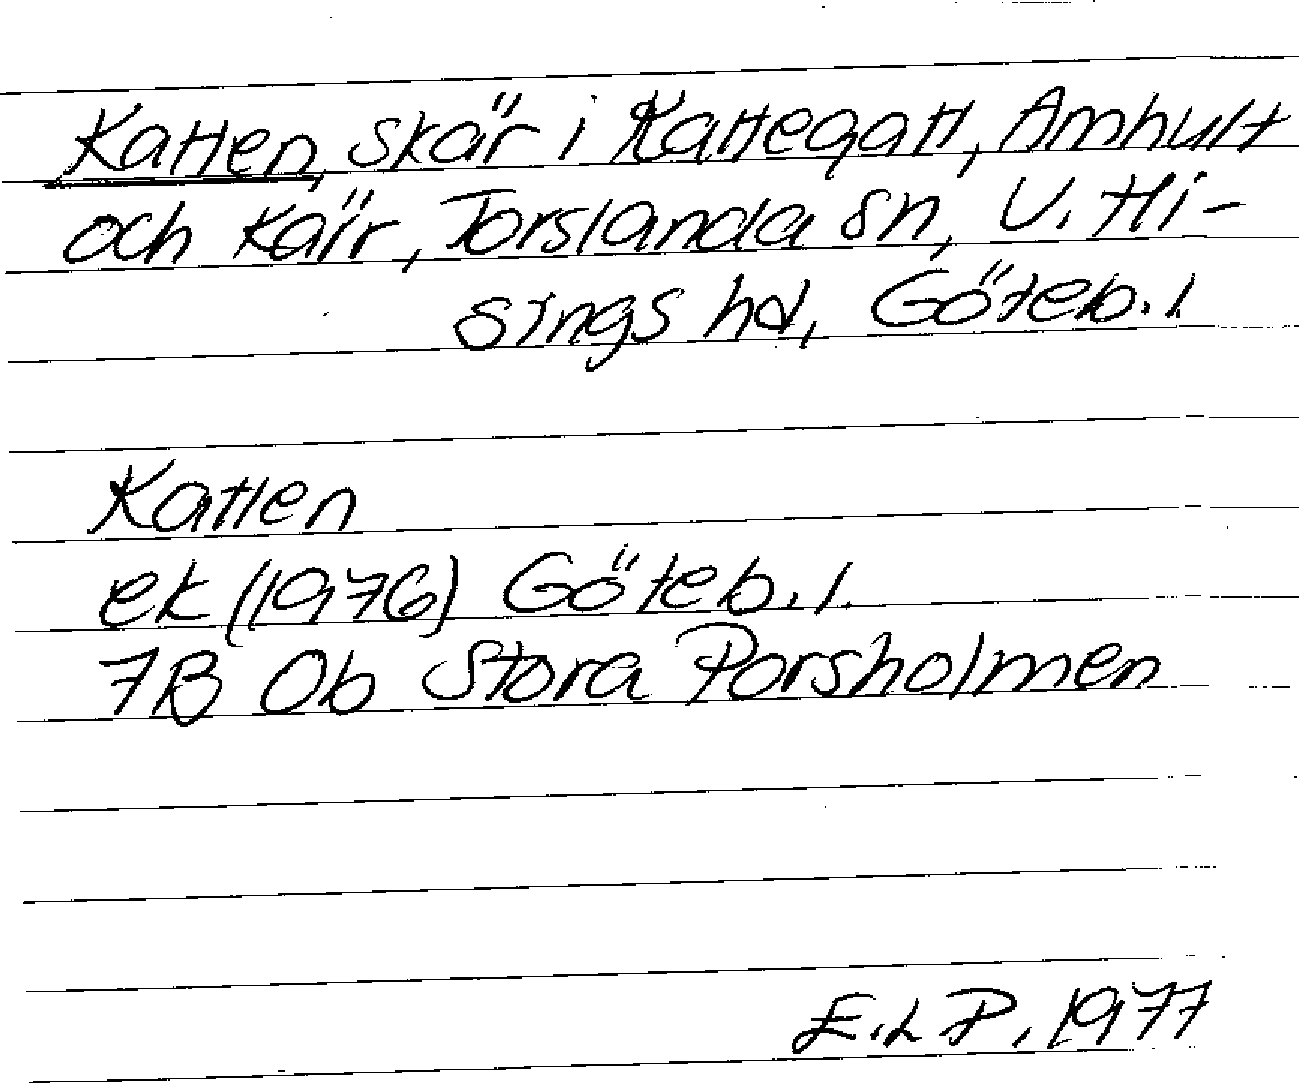 Katten, skär i Kattegatt, Amhult
och Kärr, Torslanda sn, V. Hi-
sings hd, Göteb. l.
Katten
ek (1976) Göteb. l.
7B 0b Stora Porsholmen
E.L.P. 1977